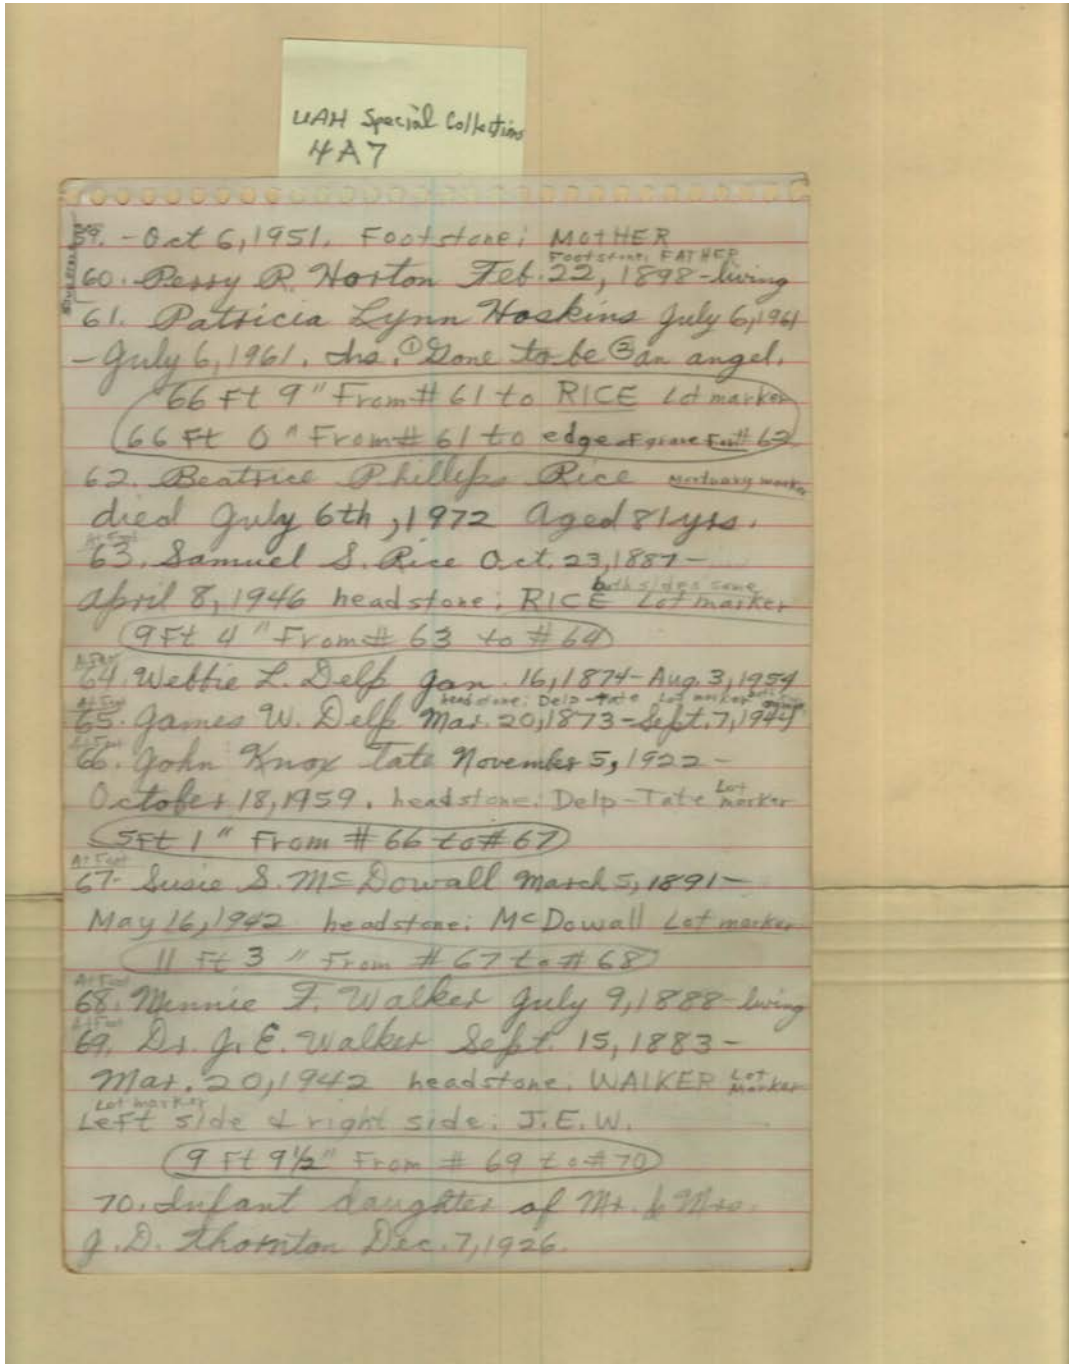 UAH Special Collections
4A7
59. - Oct 6, 1951. Footstone: MOTHER
Footstone: FATHER
60. Perry R. Horton Feb. 22, 1898 - living
61. Patricia Lynn Hoskins July 6, 1961
- July 6, 1961. Ins. ① Gone to be ② an angel.
66 Ft 9" From # 61 to RICE Lot marker
66 Ft 0" From # 61 to edge of grave For # 62
62. Beatrice Phillips Rice mortuary marker
died July 6th, 1972 Aged 81 yrs.
At Foot
63. Samuel S. Rice Oct. 23, 1887 -
both sides same
April 8, 1946 headstone: RICE Lot marker
9 Ft 4" From # 63 to # 64
At Foot
64. Webbie L. Delp Jan. 16, 1874 - Aug. 3, 1954
headstone: Delp-Tate Lot marker both
At Foot
65. James W. Delp Mar. 20, 1873 - Sept. 7, 1944
At Foot
66. John Knox Tate November 5, 1922 -
October 18, 1959. headstone: Delp-Tate Lot marker
5 Ft 1" From # 66 to # 67
At Foot
67. Susie S. McDowall March 5, 1891 -
May 16, 1942 headstone: McDowall Lot marker
11 Ft 3" From # 67 to # 68
At Foot
68. Minnie F. Walker July 9, 1888 - living
At Foot
69. Dr. J. E. Walker Sept. 15, 1883 -
Mar. 20, 1942 headstone: WALKER Lot marker
Lot marker
Left side & right side: J.E.W.
9 Ft 9½" From # 69 to # 70
70. Infant daughter of Mr. & Mrs.
J. D. Thornton Dec. 7, 1926.